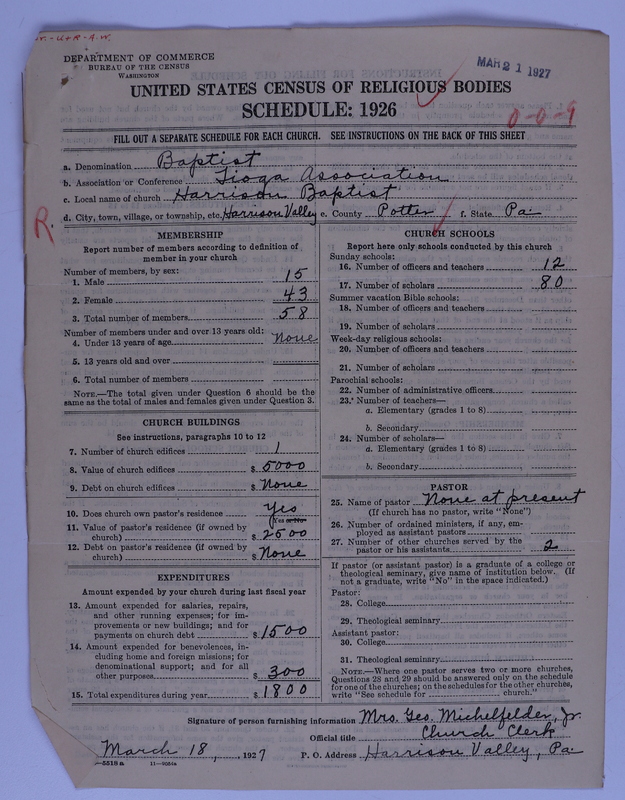 DEPARTMENT OF COMMERCE
BUREAU OF THE CENSUS
WASHINGTON
MAR 21 1927
UNITED STATES CENSUS OF RELIGIOUS BODIES
SCHEDULE: 1926
0-0-9
FILL OUT A SEPARATE SCHEDULE FOR EACH CHURCH. SEE INSTRUCTIONS ON THE BACK OF THIS SHEET
a. Denomination Baptist
b. Association or Conference Tioga Association
c. Local name of church Harrison Baptist
d. City, town, village, or township, etc. Harrison Valley e. County Potter f. State Pa
R.
MEMBERSHIP
Report number of members according to definition of
member in your church
Number of members, by sex:
1. Male 15
2. Female 43
3. Total number of members 58
Number of members under and over 13 years old:
4. Under 13 years of age None
5. 13 years old and over
6. Total number of members
NOTE.—The total given under Question 6 should be the
same as the total of males and females given under Question 3.
CHURCH BUILDINGS
See instructions, paragraphs 10 to 12
7. Number of church edifices 1
8. Value of church edifices $ 5000
9. Debt on church edifices $ None
10. Does church own pastor's residence Yes
(Yes or No)
11. Value of pastor's residence (if owned by
church) $ 2500
12. Debt on pastor's residence (if owned by
church) $ None
EXPENDITURES
Amount expended by your church during last fiscal year
13. Amount expended for salaries, repairs,
and other running expenses; for im-
provements or new buildings; and for
payments on church debt $ 1500
14. Amount expended for benevolences, in-
cluding home and foreign missions; for
denominational support; and for all
other purposes $ 300
15. Total expenditures during year $ 1800
CHURCH SCHOOLS
Report here only schools conducted by this church
Sunday schools:
16. Number of officers and teachers 12
17. Number of scholars 80
Summer vacation Bible schools:
18. Number of officers and teachers
19. Number of scholars
Week-day religious schools:
20. Number of officers and teachers
21. Number of scholars
Parochial schools:
22. Number of administrative officers
23. Number of teachers—
a. Elementary (grades 1 to 8)
b. Secondary
24. Number of scholars—
a. Elementary (grades 1 to 8)
b. Secondary
PASTOR
25. Name of pastor None at present
(If church has no pastor, write "None")
26. Number of ordained ministers, if any, em-
ployed as assistant pastors
27. Number of other churches served by the
pastor or his assistants 2
If pastor (or assistant pastor) is a graduate of a college or
theological seminary, give name of institution below. (If
not a graduate, write "No" in the space indicated.)
Pastor:
28. College
29. Theological seminary
Assistant pastor:
30. College
31. Theological seminary
NOTE.—Where one pastor serves two or more churches,
Questions 28 and 29 should be answered only on the schedule
for one of the churches; on the schedules for the other churches,
write "See schedule for church."
Signature of person furnishing information Mrs. Geo. Michelfelder, Jr.
Official title Church Clerk
March 18, 1927 P. O. Address Harrison Valley, Pa